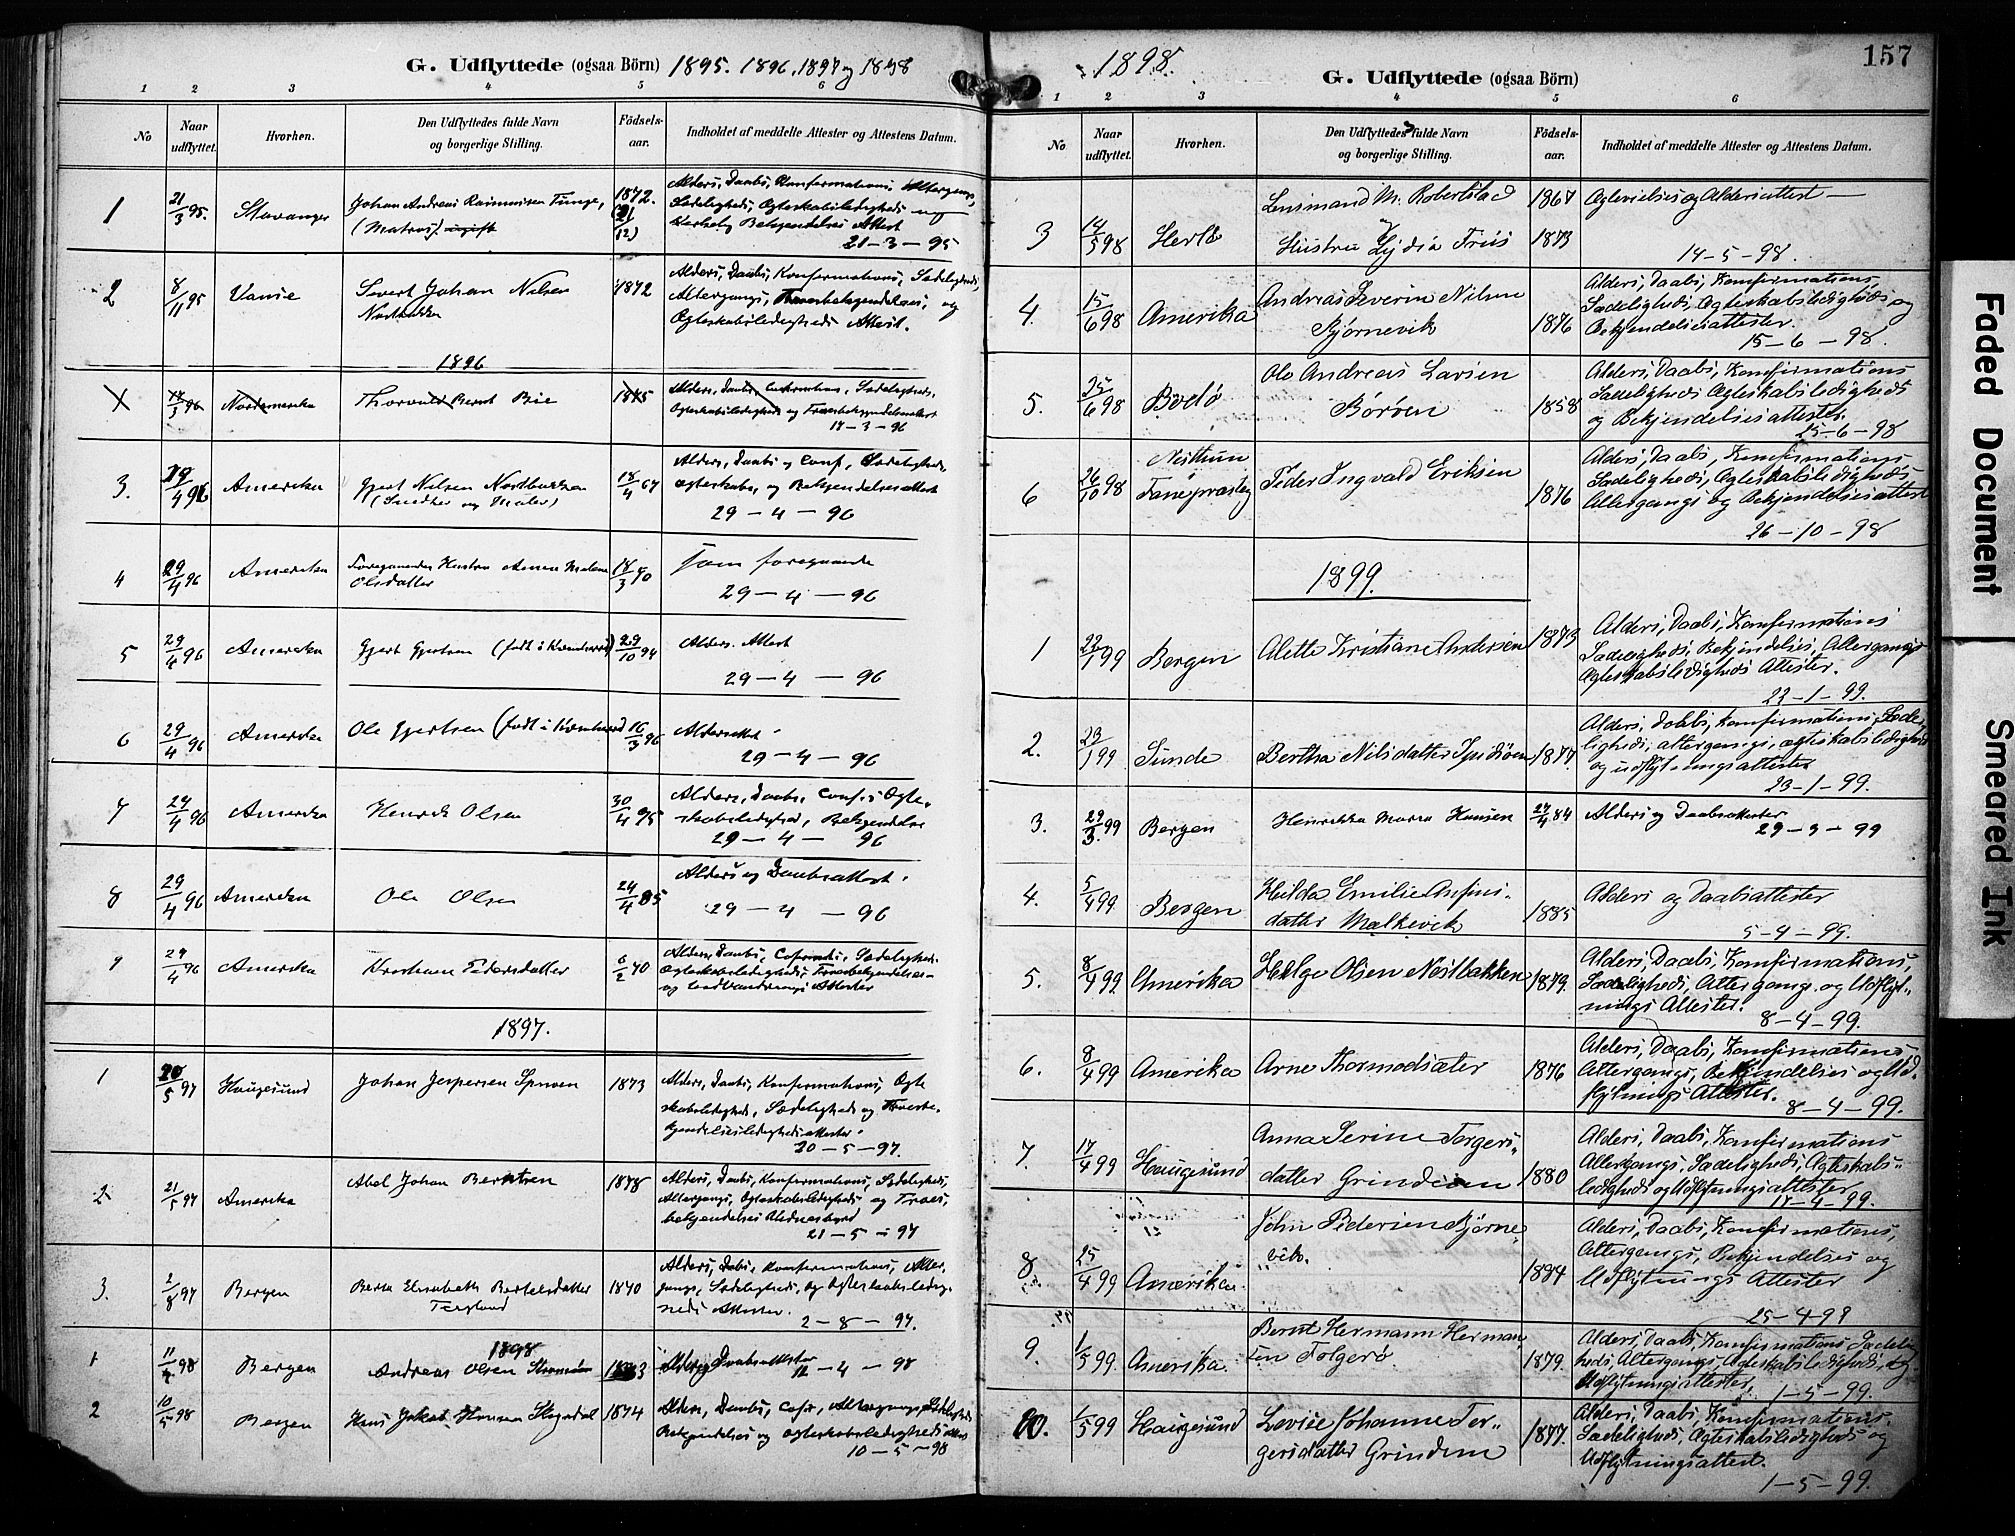 G. Udflyttede (ogsaa Börn) 1895. 1896, 1897 og 1898
1 2 3 4 5 6
No
Naar udflyttet.
Hvorhen.
Den Udflyttedes fulde Navn og borgerlige Stilling.
Födsels-aar.
Indholdet af meddelte Attester og Attestens Datum.
1 21/3 95. Stavanger Johan Andreas Rasmussen Tunge, 1872. Alders, Daabs, Konfirmations, Altergangs,
(Matros). ugift (2/12) Sædeligheds, Ægteskabsledigheds og
Bekjendelses Attest
21-3-95
2 8/11 95 Vanse Sivert Johan Nilsen 1872 Alders, Daabs, Konfirmations, Sædeligheds,
Nostbakken Altergangs, Troesbekjendelses, og
Ægteskabsledigheds Attest.
1896
X 17/3 96 Nordamerika Thorvald Bernt Bie 1875 Alders, Daabs, Confirmations, Sædeligheds,
Ægteskabsledigheds og Troesbekjendelsesattest
17-3-96
3. 29/4 96 Amerika Gjert Nilsen Nostbakken 18/4 67 Alders, Daabs og Conf, Sædeligheds,
(Snedker og Maler) Ægteskabs, og Bekjendelsesattest
29-4-96
4 29/4 96 Amerika Foregaaendes Hustru Anna Malene 18/3 70 Som foregaaende
Olsdatter 29-4-96
5 29/4 96 Amerika Gjert Gjertsen (født i Kvindherred) 29/10 94 Alders. Attest
29-4-96
6 29/4 96 Amerika Ole Gjertsen (født i Kvindherred) 16/3 96 Aldersattest
29-4-96
7 29/4 96 Amerika Henrik Olsen 30/4 75 Alders, Daabs, Conf.s Ægte-
skabsledighed, Bekjendelse
29-4-96
8 29/4 96 Amerika Ole Olsen 24/4 85 Alders og Daabsattest.
29-4-96
9 29/4 96 Amerika Pedersdatter 6/2 70 Alders, Daabs, Sædeligheds
Ægteskabsledigheds, Troesbekjendelses-
og Udvandrings Attester
1897.
1 20/5 97 Haugesund Johan Jespersen 1873 Alders, Daabs, Konfirmations, Ægte
skabsledigheds, Sædeligheds og Troesbe-
20-5-97.
2 21/5 97 Amerika Abel Johan Berntsen 1878 Alders, Daabs, Konfirmations, Sædeligheds,
Altergangs, Ægteskabsledigheds og Troes,
bekjendelses Vidnesbyrd
21-5-97
3. 2/8 97 Bergen Berta Elisabeth Bertelsdatter 1870 Alders, Daabs, Konfirmations, Alter,
Teigland gangs, Sædeligheds, og Ægteskabsledig-
heds Attester.
2-8-97.
1898
1 11/4 98 Bergen Andreas Olsen Alders og Daabsattester
11-4-98
2 10/5 98 Bergen Hans Jakob Hansen 1874 Alders, Daabs, Conf., Altergangs, Sædeligheds
Bekjendelses og Ægteskabsledigheds attest
10-5-98
1898. G. Udflyttede (ogsaa Börn) 157
1 2 3 4 5 6
No
Naar udflyttet.
Hvorhen.
Den Udflyttedes fulde Navn og borgerlige Stilling.
Födsels-aar.
Indholdet af meddelte Attester og Attestens Datum.
Lensmand M. Robertstad 1867 Ægtevielses og Aldersattest
3 14/5 98 Herlø Hustru Lydia Friis 1873 14-5-98.
4. 15/6 98 Amerika Andreas Severin Nilsen 1876 Alders, Daabs, Konfirmations
Bjørnevik Sædeligheds, Ægteskabsledigheds og
Bekjendelsesattester.
15-6-98.
5. 25/6 98 Bodø Ole Andreas Larsen 1858 Alders, Daabs, Konfirmations
Børøen Sædeligheds Ægteskabsledigheds
og Bekjendelsesattester.
25-6-98
6 26/10 98 Nesttun Peder Ingvald Eriksen 1876 Alders, Daabs, Konfirmations
Faneprestegj Sædeligheds, Ægteskabsledigheds,
Altergangs og Bekjendelsesattest
26-10-98
1899.
1 22/1 99 Bergen Alette Kristiane Andersen 1873 Alders, Daabs, Konfirmations
Sædeligheds, Bekjendelses, Altergangs
Ægteskabsledigheds Attester.
23-1-99.
2. 23/1 99 Sunde Bertha Nilsdatter 1877. Alders, Dobbs, Konfirmations, Sæde-
ligheds, altergangs, ægteskabsledigheds
og udflytningsattester
23-1-99.
3. 29/3 99 Bergen Henrikka Maria Hansen 27/4 84 Alders og Daabsattester
29-3-99
4. 5/4 99. Bergen Hilda Emilie Anfins- 1885 Alders og Daabsattester
datter Malkevik 5-4-99.
5. 8/4 99 Amerika Helge Olsen Nostbakken 1879. Alders, Daabs, Konfirmations,
Sædeligheds, Altergangs. og Udflyt-
nings Attester.
8-4-99.
6. 8/4 99 Amerika Arne Thormodsæter 1876 Alders, Daabs, Konfirmations
Altergangs, Bekjendelses og Ud-
flytnings Attester.
8-4-99.
7. 17/4 99 Haugesund Anna Serine Torgers- 1880 Alders, Daabs, Konfirmations
datter Grindeim Altergangs, Sædeligheds, Ægteskabs-
ledigheds og Udflytningsattester
17-4-99.
8 25/4 99 Amerika. John Pedersen Bjørne- 1884 Alders, Daabs, Konfirmations,
vik. Altergangs, Bekjendelses og
Udflytnings Attester
25-4-99
9. 1/5 99. Amerika. Bernt Hermann Herman- 1879. Alders, Daabs, Konfirmations Sædelig
sen Folgerø. heds, Altergangs, Ægteskabsledigheds, og
Udflytningsattester.
1-5-99.
10. 1/5 99 Haugesund Lovise Johanne Tor- 1877. Alders, Daabs, Konfirmations,
gersdatter Grindeim Sædeligheds, Ægteskabsledigheds og
Udflytningsattest.
1-5-99.
Faded Document
Smeared Ink